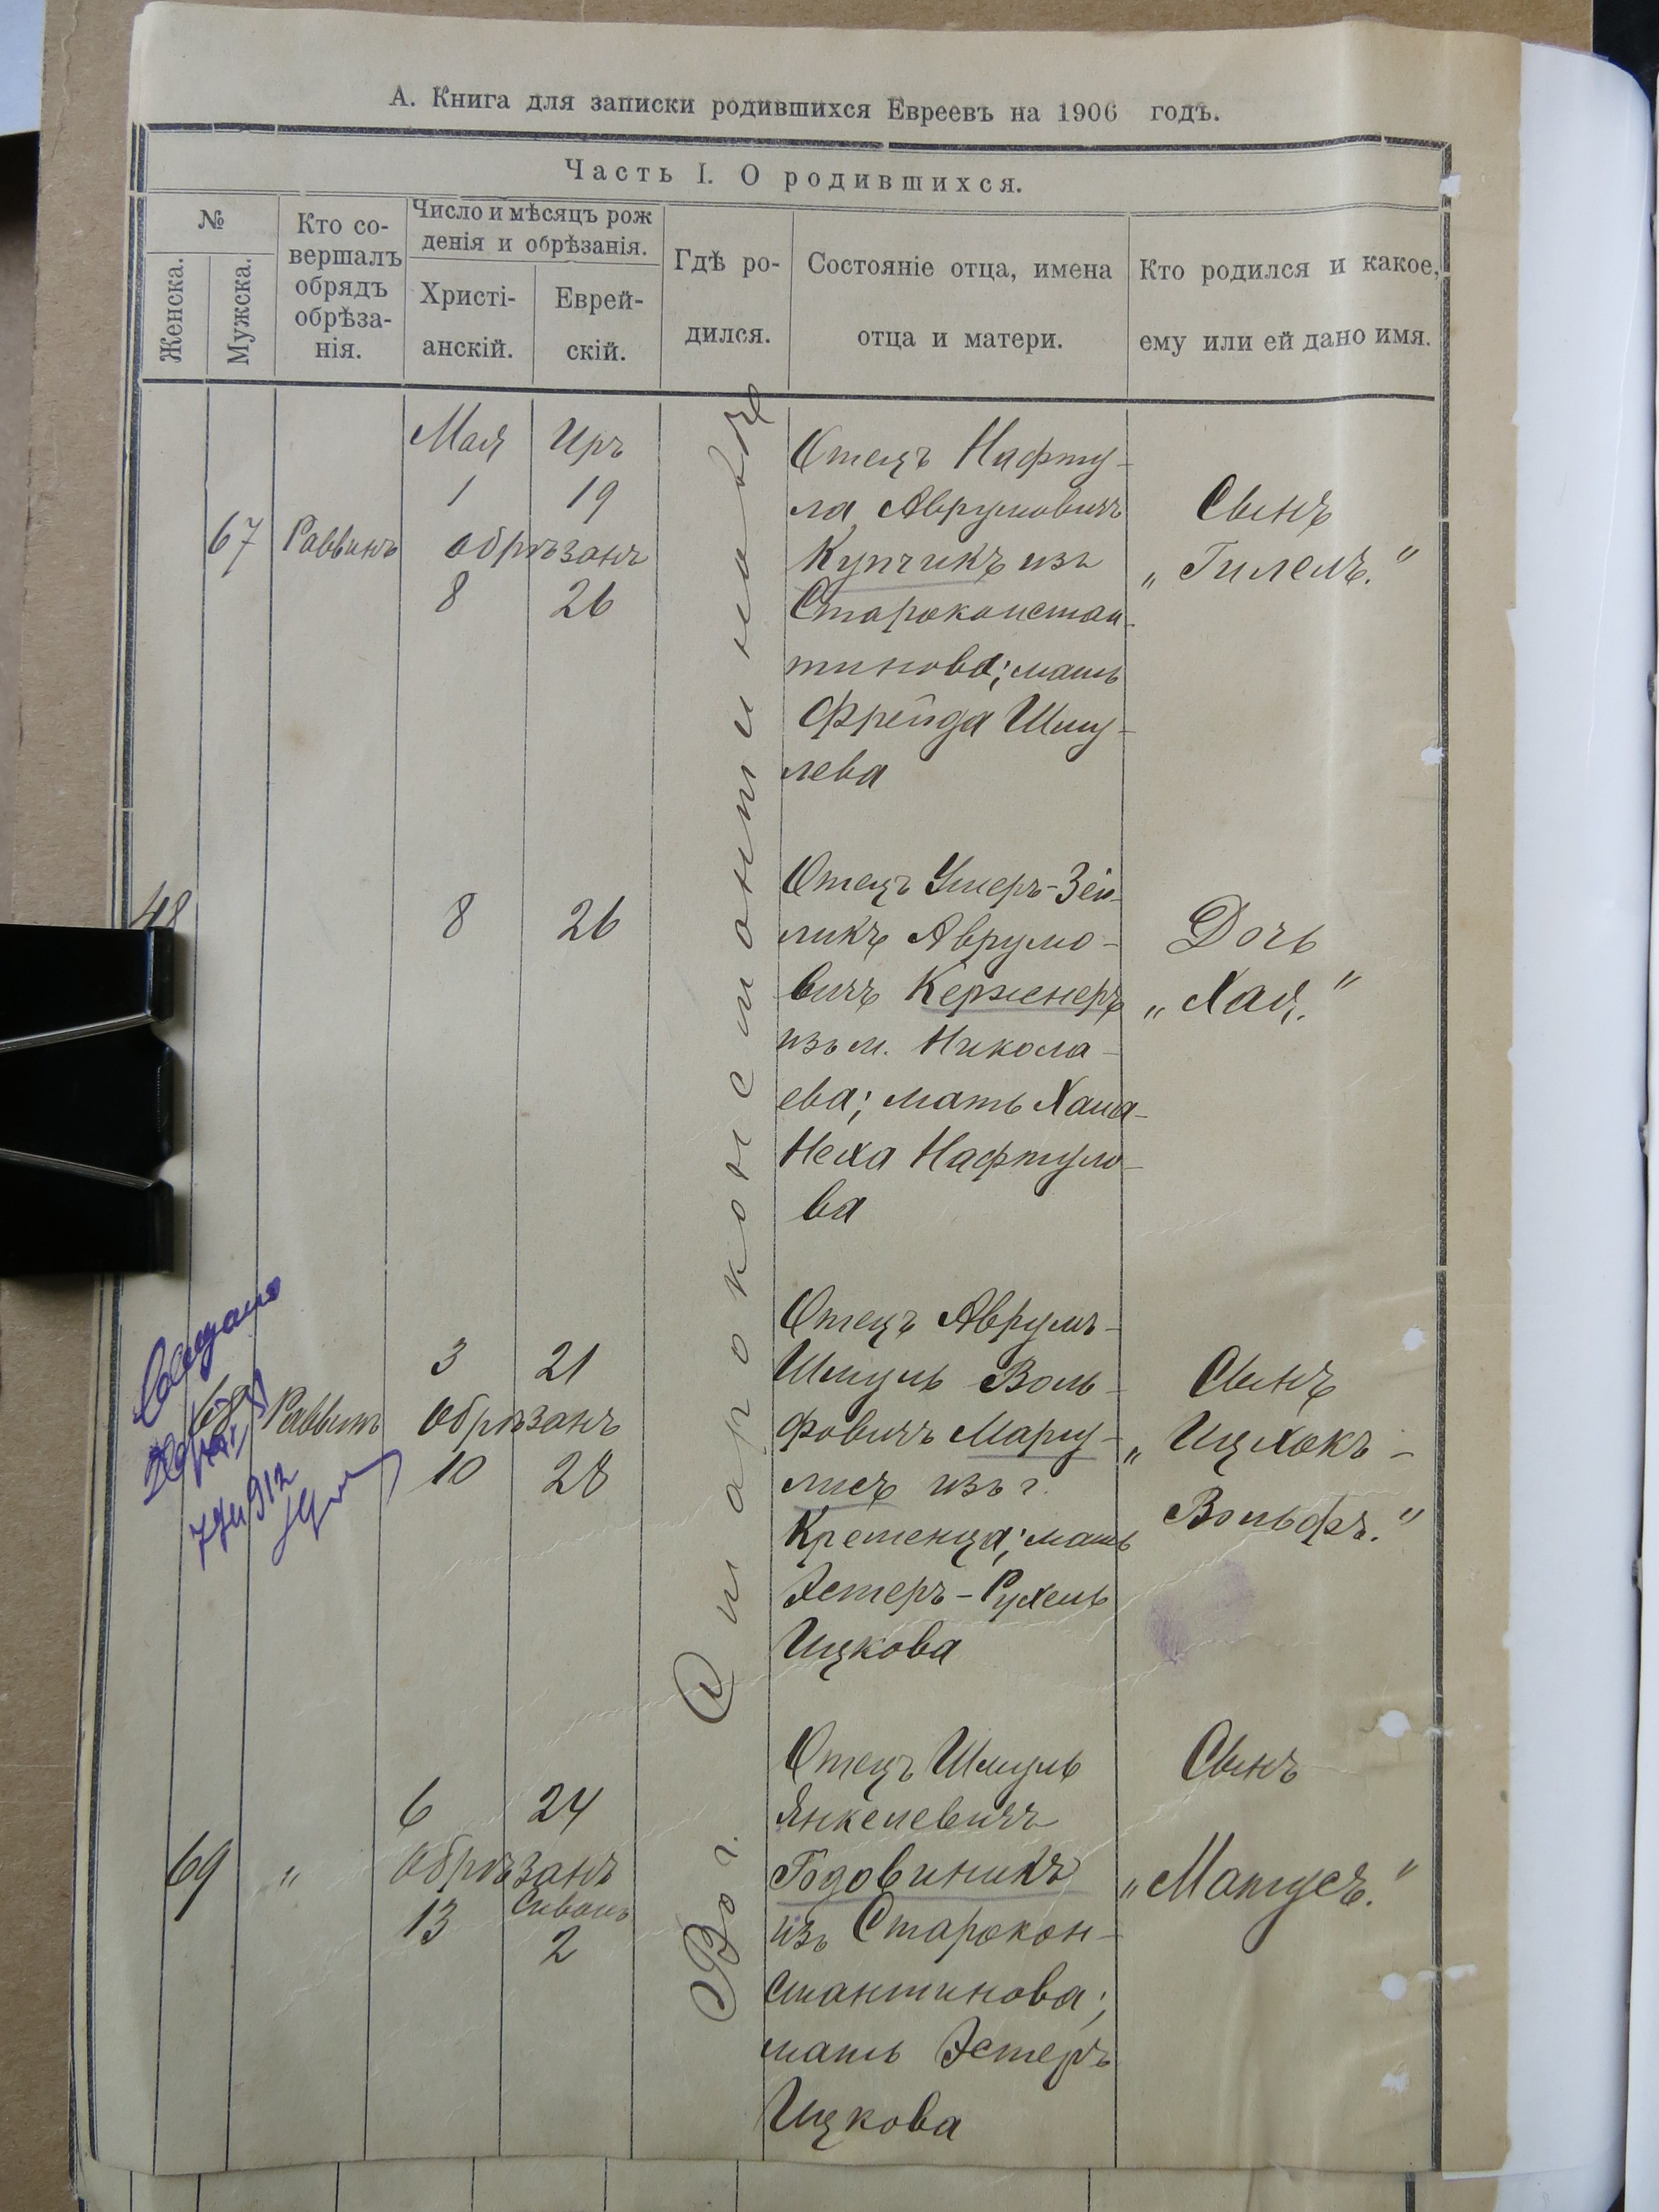 А. Книга для записки родившихся Евреевъ на 1906 годъ.
Часть I. О родившихся.
№
Женска.
Мужска.
Кто со-
вершалъ
обрядъ
обрѣза-
нія.
Число и мѣсяцъ рож
денія и обрѣзанія.
Христі-
анскій.
Еврей-
скій.
Гдѣ ро-
дился.
Состояніе отца, имена
отца и матери.
Кто родился и какое,
ему или ей дано имя.
Во г. Староконстантиновѣ
67
Раввинъ
Мая Иръ
1 19
обрѣзанъ
8 26
Отецъ Нафту-
ла Аврумовичъ
Купчикъ изъ
Староконстан-
тинова; мать
Фрейда Шму-
лева
Сынъ
„Гилель."
48
8 26
Отецъ Умеръ-Зей-
ликъ Аврумо-
вичъ Керженеръ
изъ м. Никола-
ева; мать Хана-
Неха Нафтуло-
ва
Дочь
„Хая."
68
Раввинъ
3 21
обрѣзанъ
10 28
Отецъ Аврумъ-
Шмуль Воль-
фовичъ Маргу-
лисъ изъ г.
Кременца; мать
Эстеръ-Рухель
Ицкова
Сынъ
„Ицхокъ-
Вольфъ."
69
"
6 24
обрѣзанъ
13 Сиванъ
2
Отецъ Шмуль
Янкелевичъ
Годовиникъ
изъ Старокон-
стантинова;
мать Эстеръ
Ицкова
Сынъ
„Матусъ."